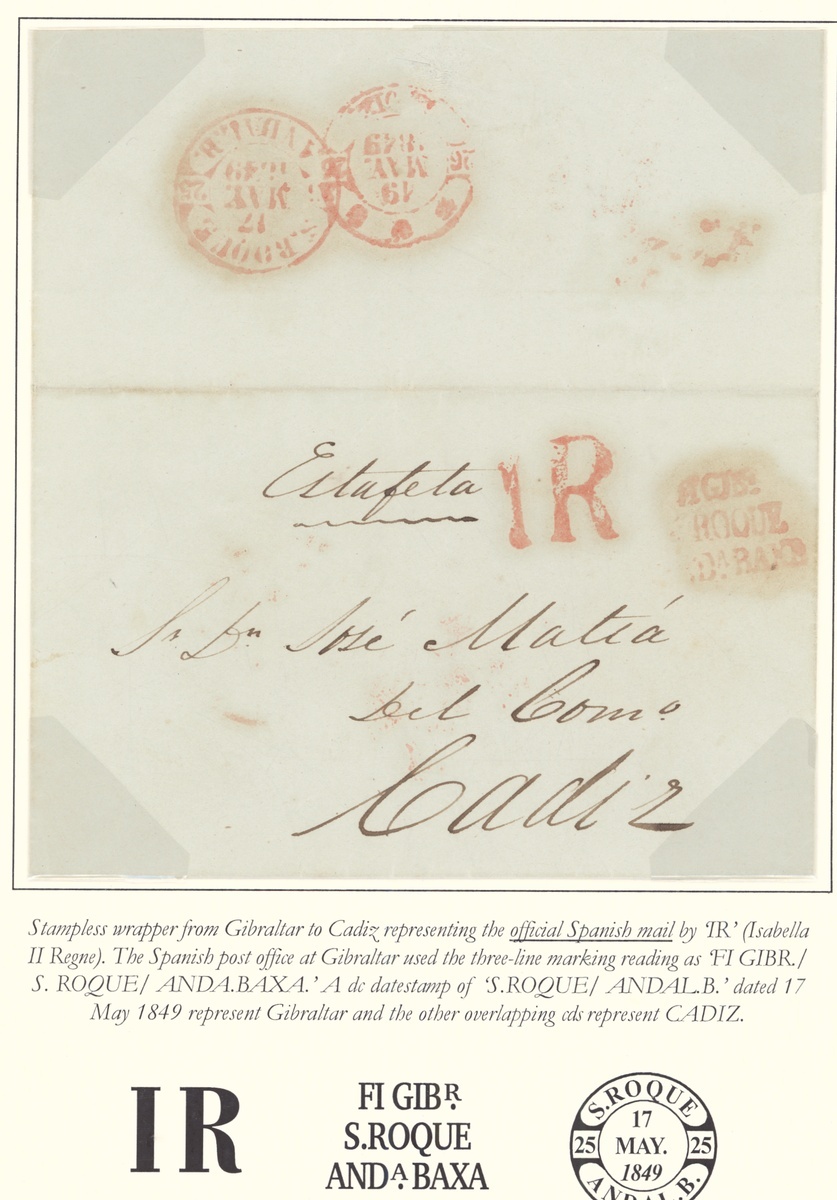 S.ROQUE
17
MAY
1849
19
MAY
1849
Estafeta
1R
GIBR.
ROQUE
Sr Dn José Matiá
Del Como
Cadiz
Stampless wrapper from Gibraltar to Cadiz representing the official Spanish mail by 'IR' (Isabella
II Regne). The Spanish post office at Gibraltar used the three-line marking reading as 'FI GIBR./
S. ROQUE/ ANDA.BAXA.' A dc datestamp of 'S.ROQUE/ ANDAL.B.' dated 17
May 1849 represent Gibraltar and the other overlapping cds represent CADIZ.
IR
FI GIBR.
S.ROQUE
ANDA.BAXA
S.ROQUE
17
25 MAY. 25
1849
ANDAL.B.